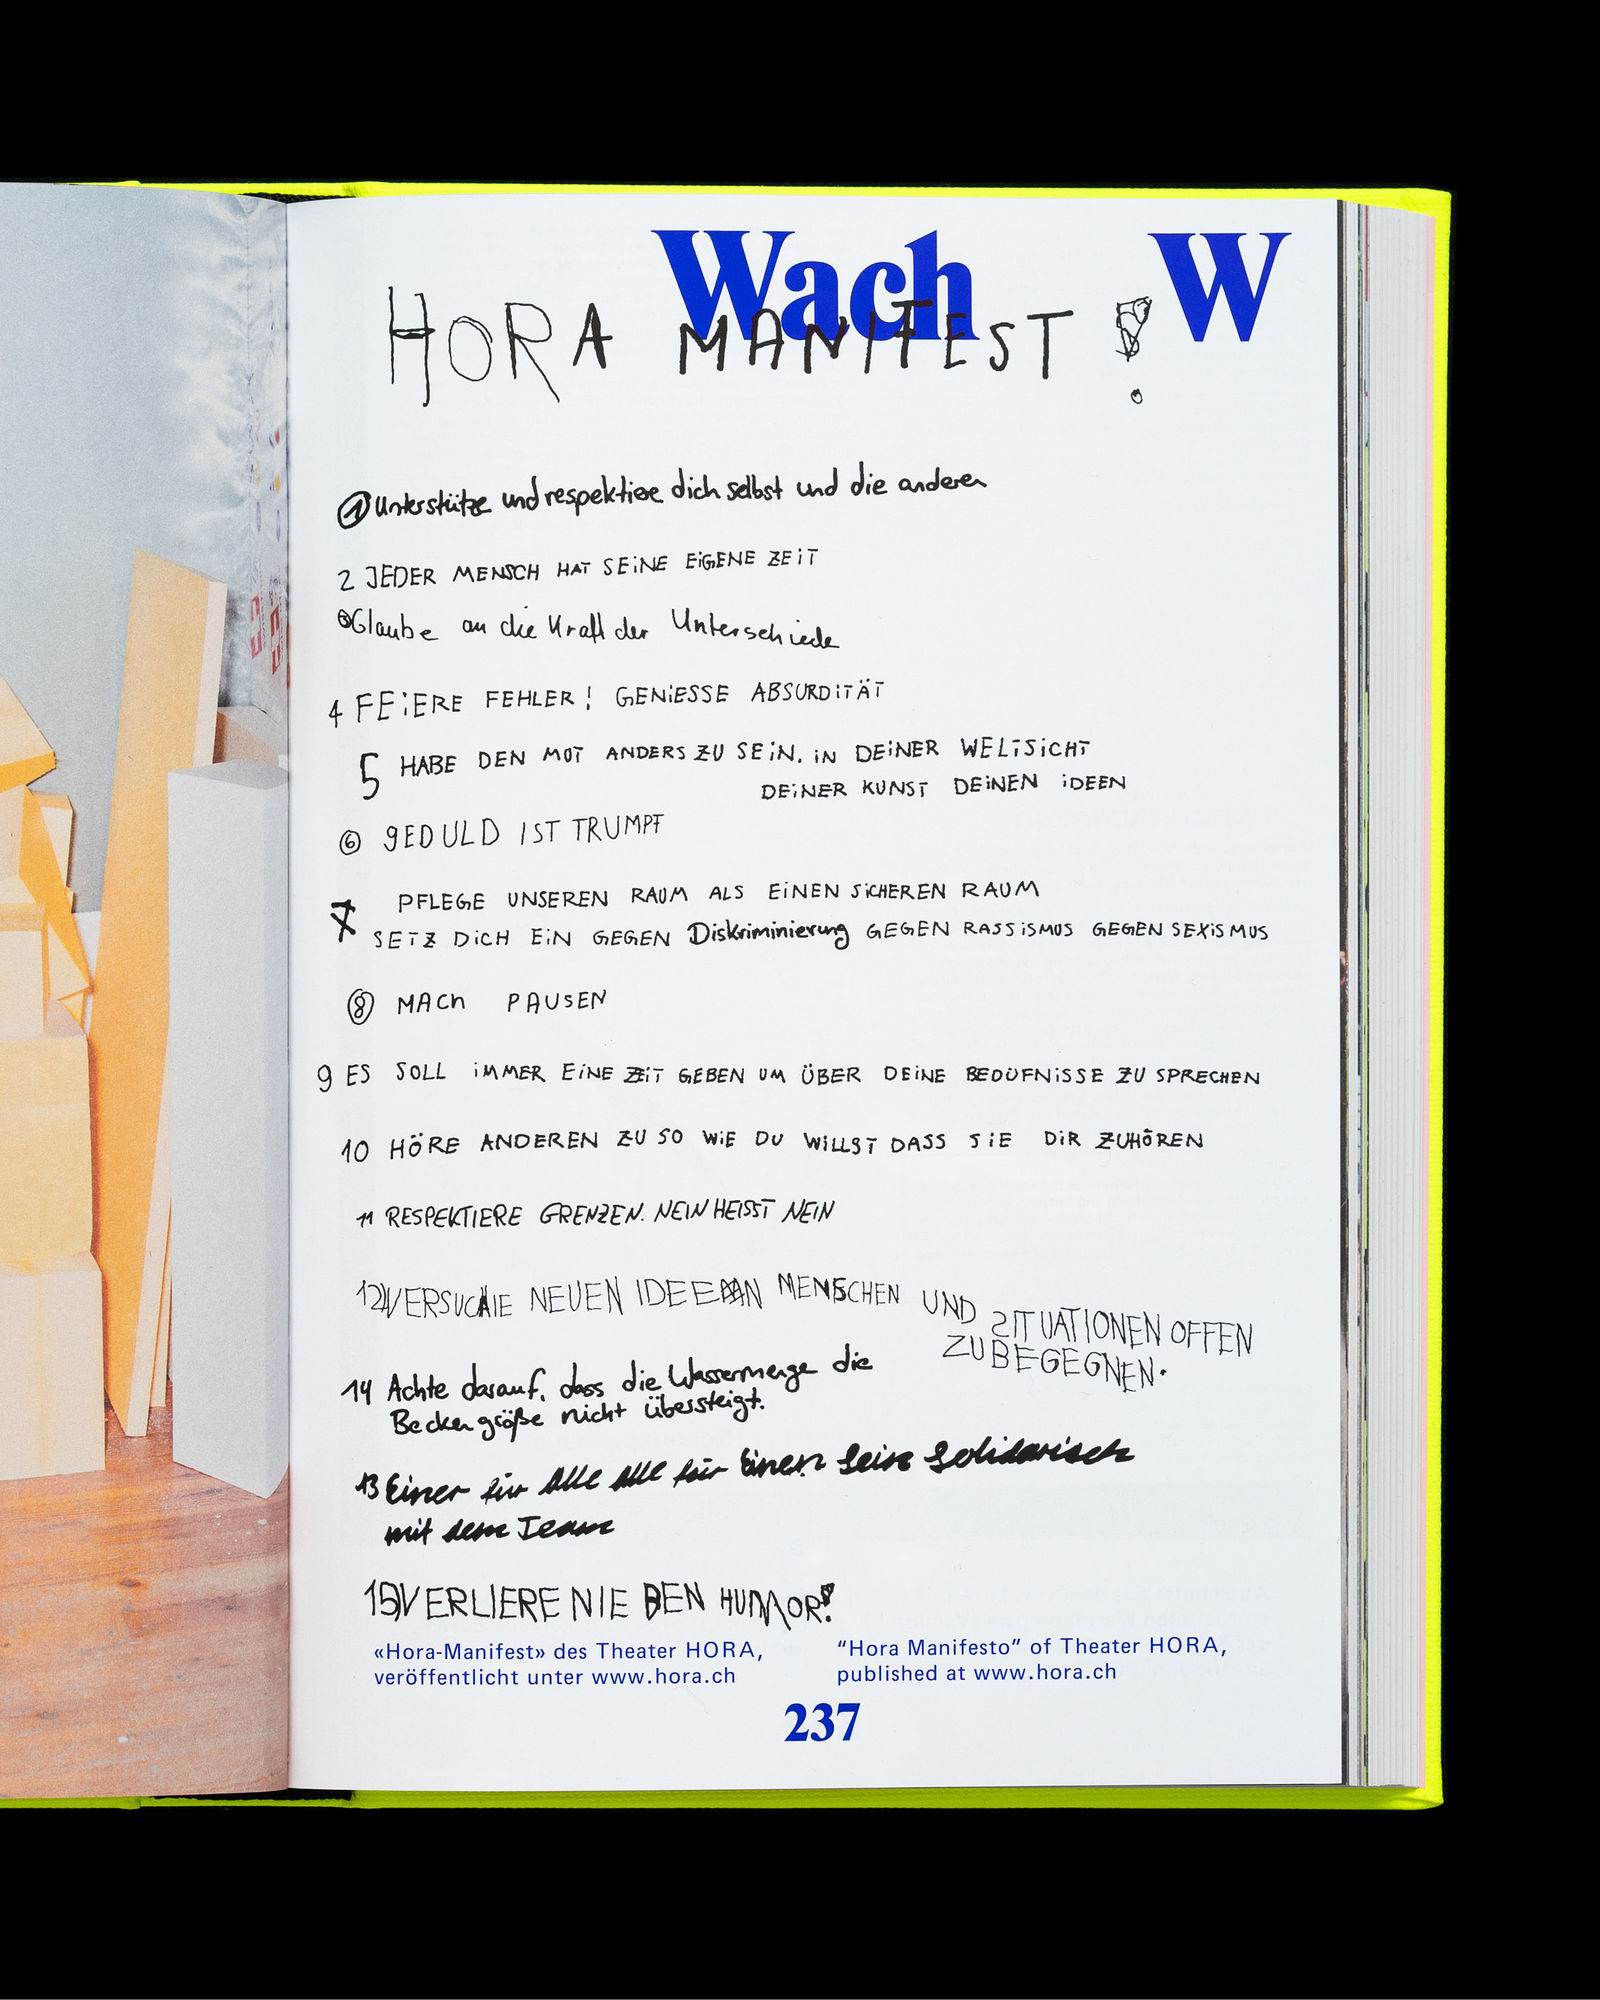 Wach W
HORA MANIFEST!
1 Unterstütze und respektiere dich selbst und die anderen
2 JEDER MENSCH HAT SEINE EIGENE ZEIT
3 Glaube an die Kraft der Unterschiede
4 FEIERE FEHLER! GENIESSE ABSURDITÄT
5 HABE DEN MUT ANDERS ZU SEIN. IN DEINER WELTSICHT
DEINER KUNST DEINEN IDEEN
6 GEDULD IST TRUMPF
PFLEGE UNSEREN RAUM ALS EINEN SICHEREN RAUM
7 SETZ DICH EIN GEGEN Diskriminierung GEGEN RASSISMUS GEGEN SEXISMUS
8 MACH PAUSEN
9 ES SOLL IMMER EINE ZEIT GEBEN UM ÜBER DEINE BEDÜFNISSE ZU SPRECHEN
10 HÖRE ANDEREN ZU SO WIE DU WILLST DASS SIE DIR ZUHÖREN
11 RESPEKTIERE GRENZEN. NEIN HEISST NEIN
12 VERSUCHE NEUEN IDEEN MENSCHEN UND SITUATIONEN OFFEN
ZU BEGEGNEN.
14 Achte darauf, dass die Wassermenge die
Beckengröße nicht übersteigt.
13 Einer für Alle Alle für Einen Sein Solidarisch
mit dem Team
15 VERLIERE NIE DEN HUMOR!
«Hora-Manifest» des Theater HORA,
veröffentlicht unter www.hora.ch
"Hora Manifesto" of Theater HORA,
published at www.hora.ch
237